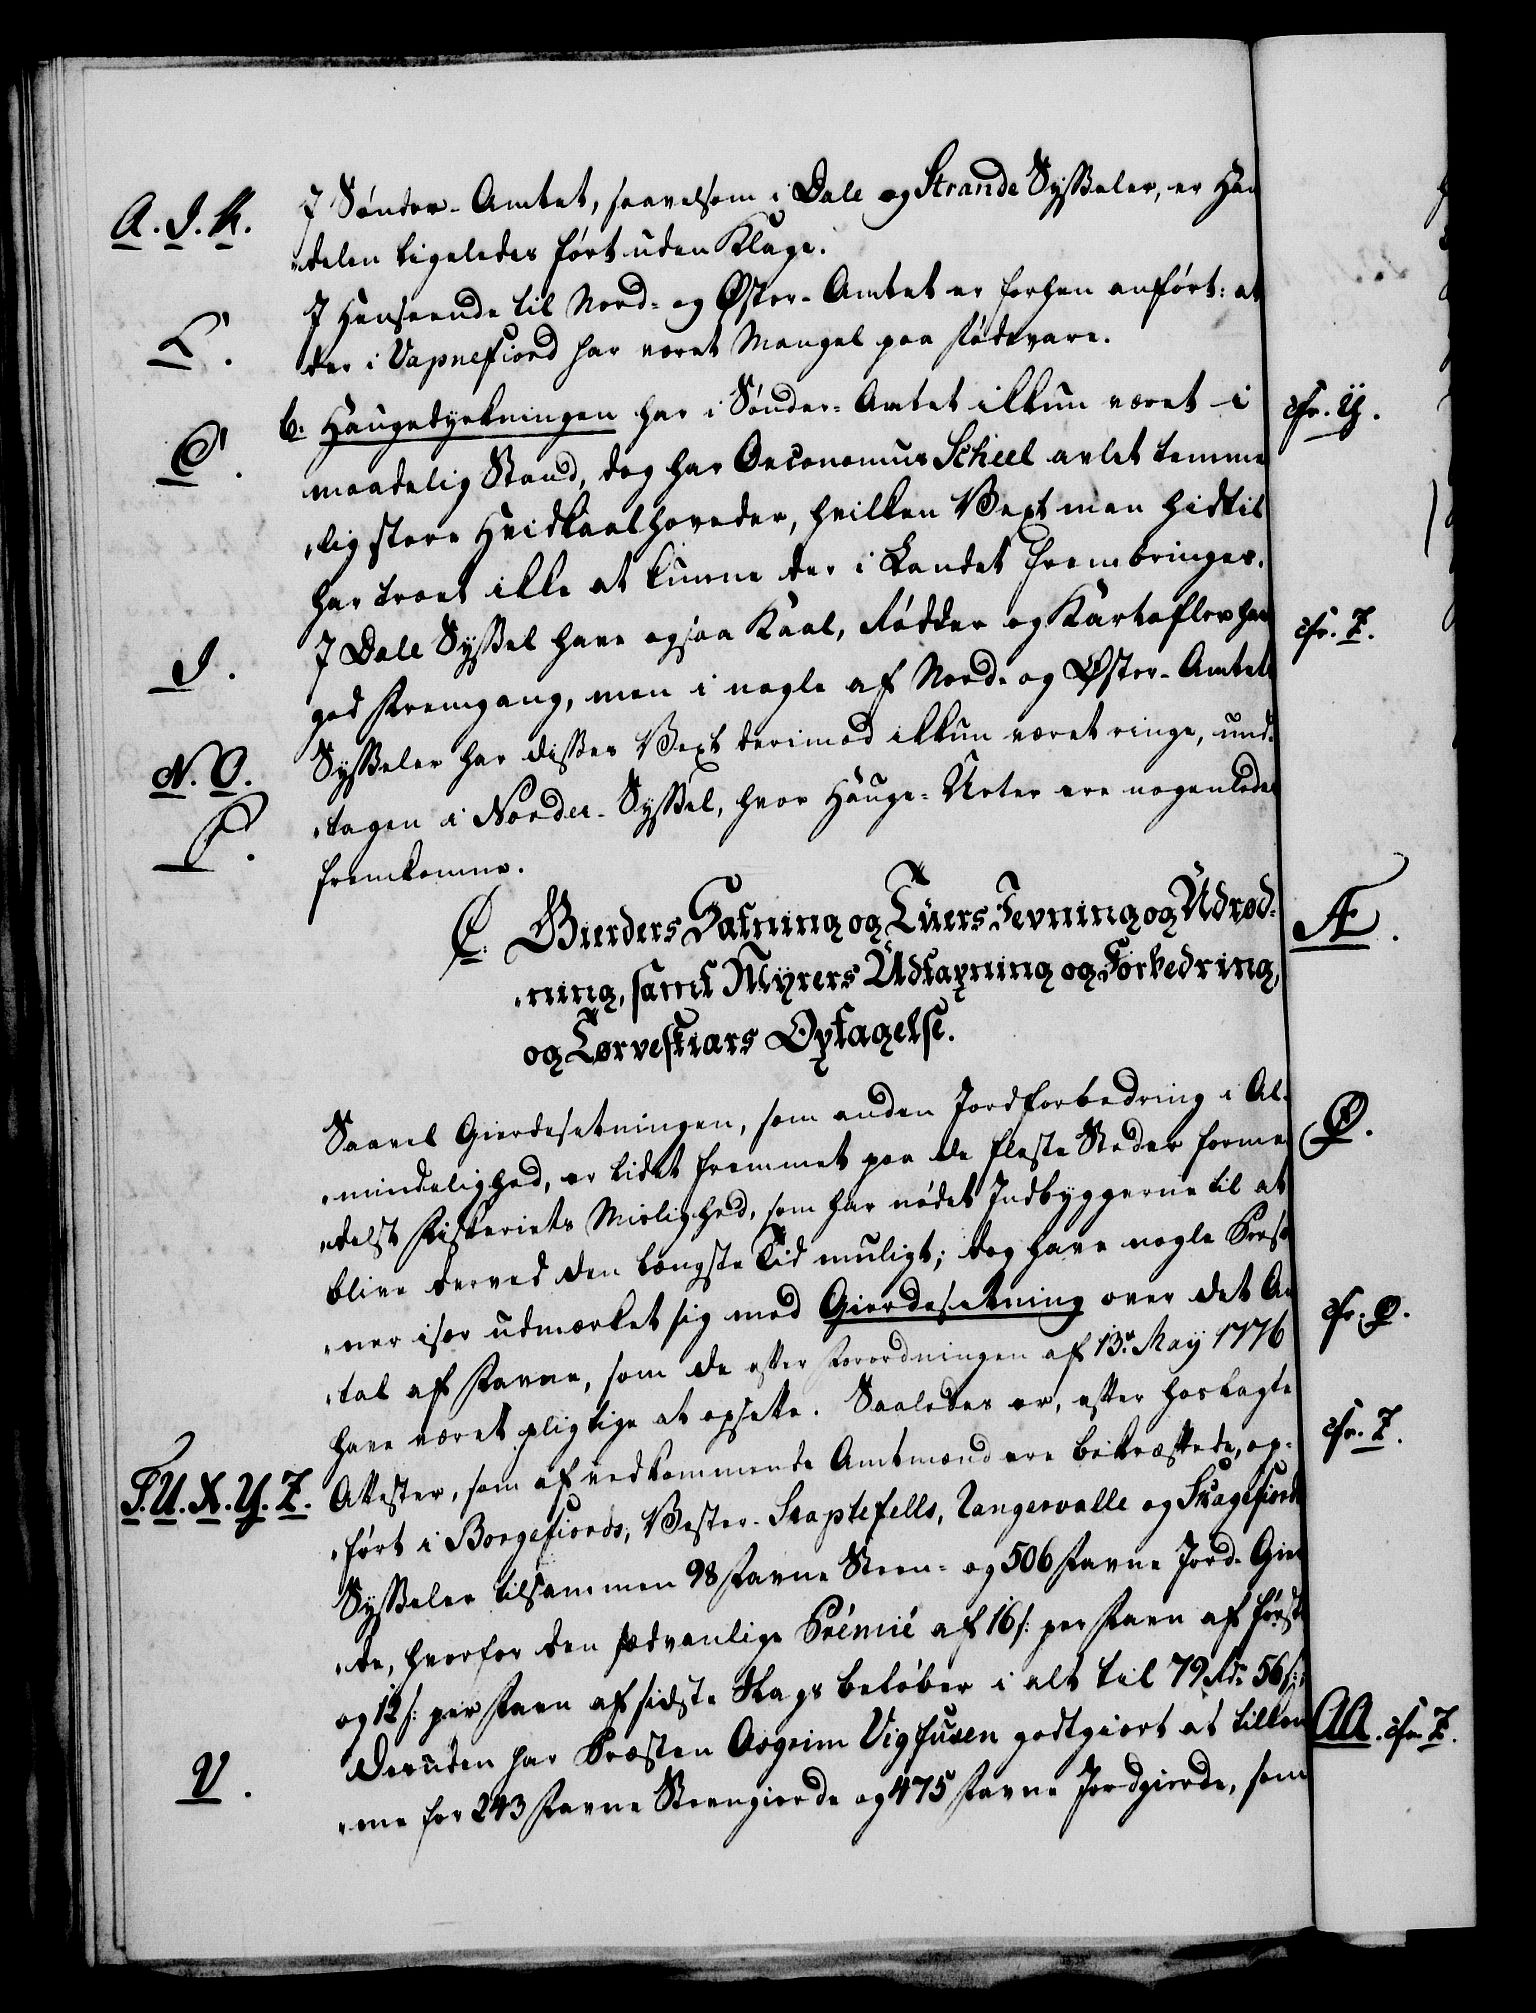 A. I. K.
I Sönder-Amtet, saavelsom i Dale og Strande Sysseler, er Han
„delen ligeledes fört uden Klage.
I Henseende til Nord- og Øster-Amtet er forhen anfört: at
L.
der i Vapnefiord har været Mangel paa Födevare.
b. Haugedyrkningen har i Sönder-Amtet ikkun været i
cfr. Y.
C.
maadelig Stand, dog har Oeconomus Scheel avlet temme
„lig store Hvidkaalhoveder, hvilken Vext man hidtil
har troet ikke at kunne der i Landet frembringes.
I Dale Syssel have ogsaa Kaal, Rödder og Kartofler hav
cfr. Z.
I.
god Fremgang, men i nogle af Nord- og Øster-Amtets
Sysseler har disses Vext derimod ikkun været ringe, und-
N. O.
„tagen i Norder-Syssel, hvor Hauge-Urter ere nogenledes
P.
fremkomne.
C. Gierders Sætning og Tüers Jevning og Üdrød-
Æ.
„ning, samt Myrers Üdtapning og Forbedring,
og Tørveskiærs Optagelse.
Saavel Gierdesetningen, som anden Jordforbedring i Al-
Ø.
„mindelighed, er lidet fremmet paa de fleste Steder forme
„delst Fiskeriets Mislighed, som har nödet Indbyggerne til at
blive derved den længste Tid muligt; dog have nogle Pers
„ner især udmærket sig med Gierdesetning over det An
cfr. Ø.
„tal af Favne, som de efter Forordningen af 13de May 1776
have været pligtige at opsette. Saaledes er, efter hoslagte
cfr. Z.
T. U. X. Y. Z.
Attester, som af vedkommende Amtmænd ere bekræftede, op-
„fört i Borgefiords, Vester-Skaptefells, Rangervalle og Skagefiords
Sysseler tilsammen 98 Favne Steen- og 506 Favne Jord-Gier
„de, hvorfor den sædvanlige Prémie af 16 s: per Favn af först
og 12 s: per Favn af sidste Slags beløber i alt til 79 Rdr 56 s:;
Desuden har Præsten Asgrim Vigfusen godtgiort at tilkom
AA. cfr. Z.
V.
„me for 243 Favne Steengierde og 475 Favne Jordgierde, som